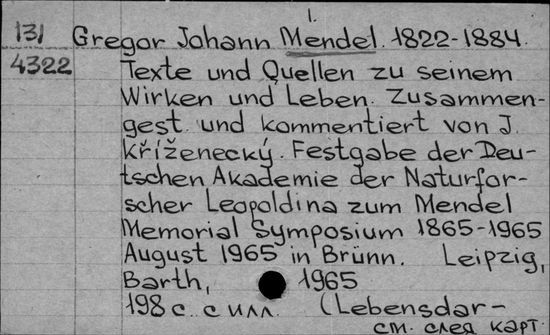 1.
131 Gregor Johann Mendel. 1822-1884.
4322 Texte und Quellen zu seinem
Wirken und Leben. Zusammen-
gest. und kommentiert von J.
Kříženecký. Festgabe der Deu-
tschen Akademie der Naturfor-
scher Leopoldina zum Mendel
Memorial Symposium 1865-1965
August 1965 in Brünn. Leipzig,
Barth, 1965
198 с. с илл. (Lebensdar-
см. след карт.